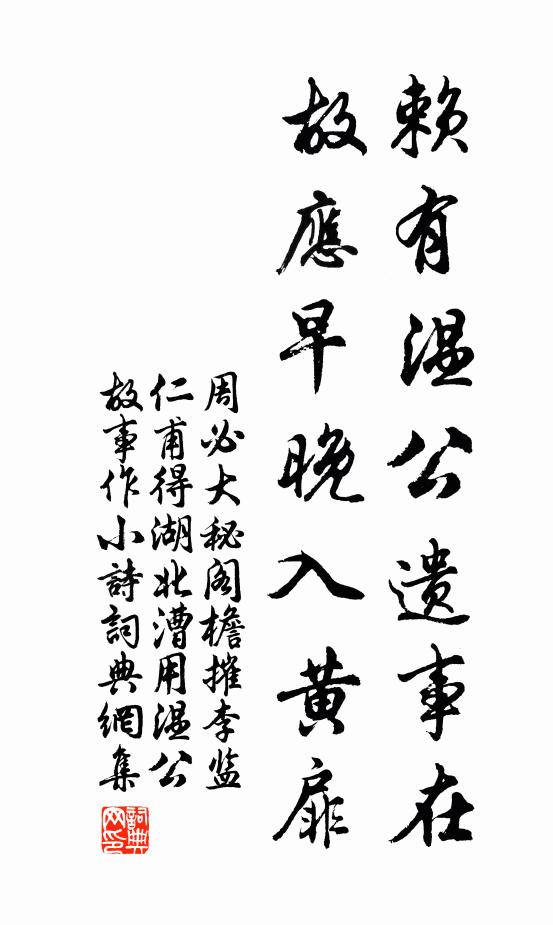 賴有温公遺事在
故應早晚入黃扉
周必大秘閣檐摧李監
仁甫得湖北漕用温公
故事作小詩詞典網集
詞典网印